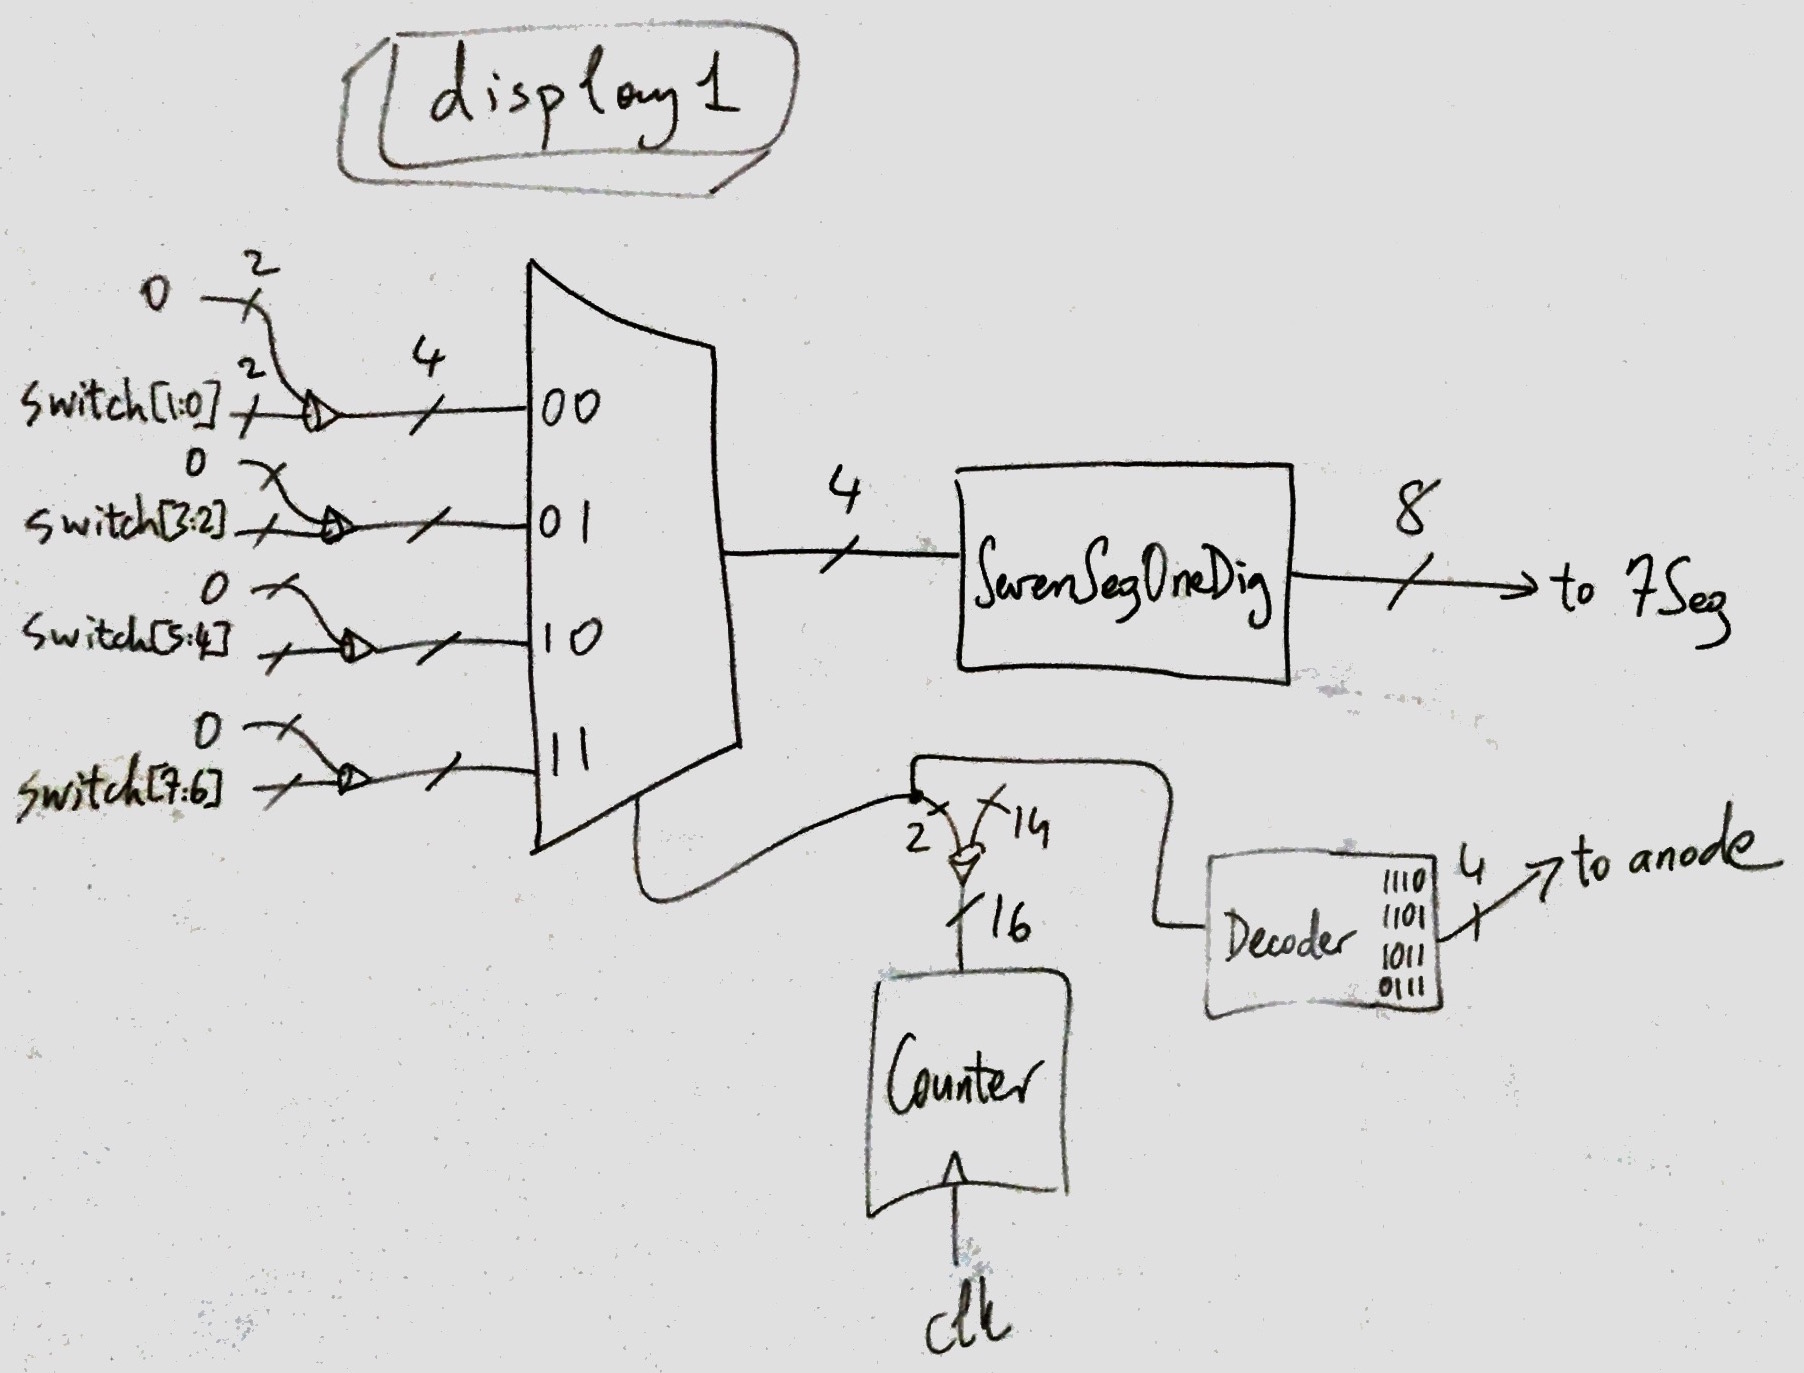 display1
2
0
2
4
switch[1:0]
00
0
switch[3:2]
01
0
switch[5:4]
10
0
switch[7:6]
11
4
SevenSegOneDig
8
to 7Seg
2
14
16
Counter
clk
Decoder
1110
1101
1011
0111
4
to anode